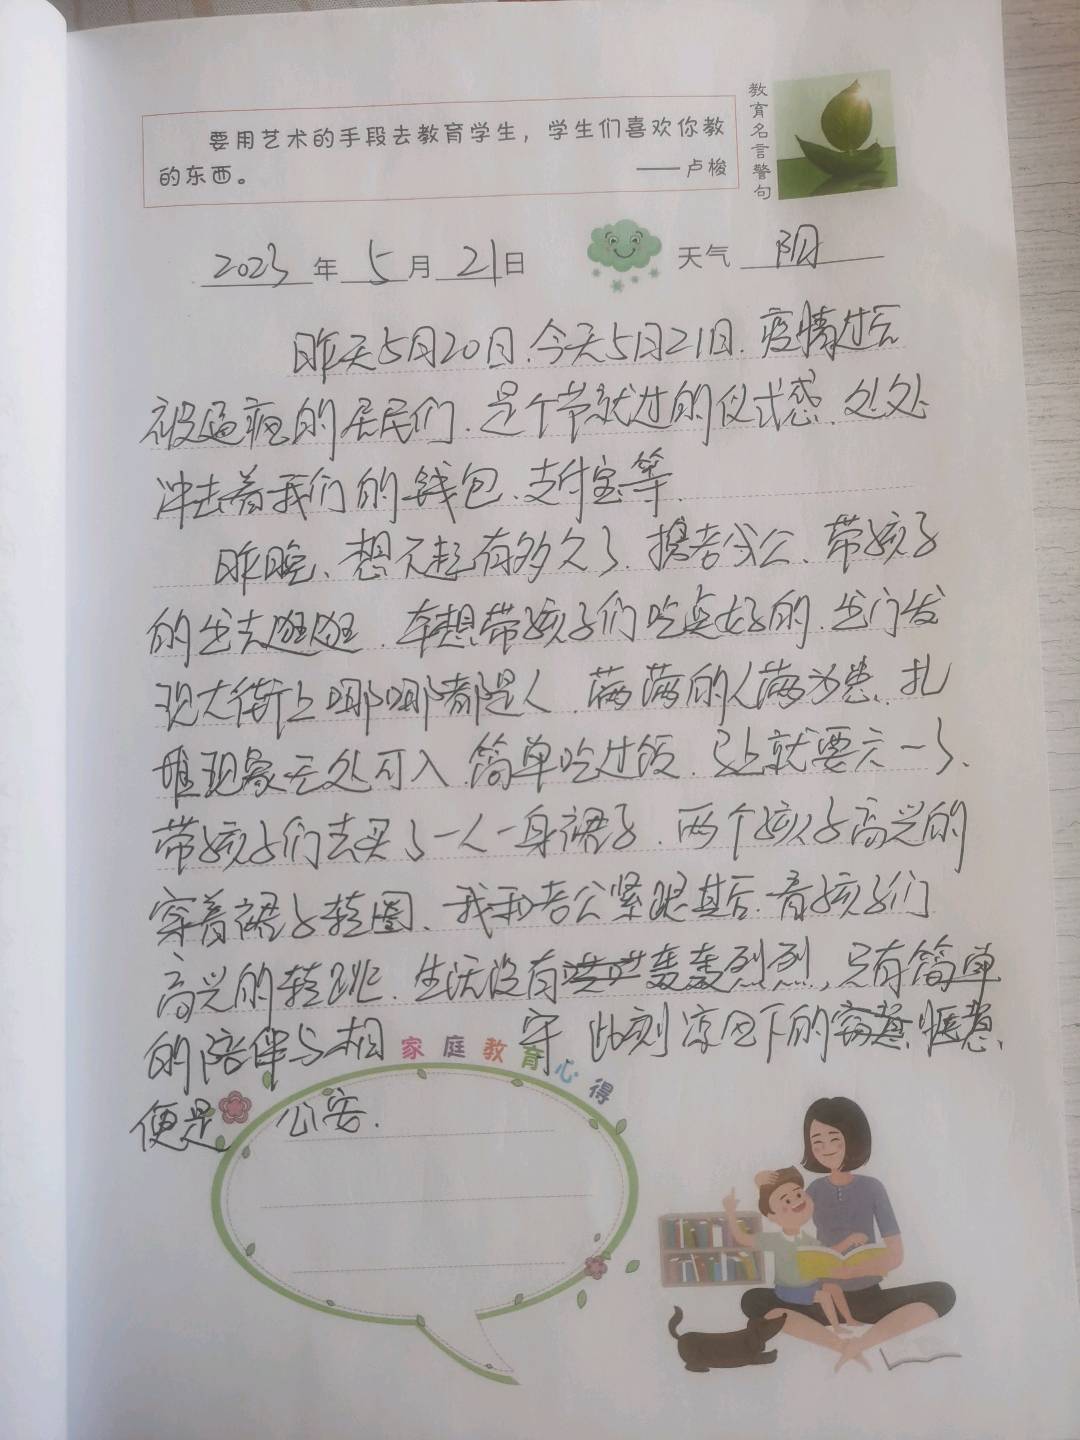 要用艺术的手段去教育学生，学生们喜欢你教
的东西。
——卢梭
教育名言警句
2023年5月21日 天气 阴
昨天5月20日.今天5月21日.疫情过后
被逼疯的居民们.是个节就过的仪式感.处处
冲击着我们的钱包、支付宝等.
昨晚、想不起有多久了.携老公、带孩子
的出去逛逛.本想带孩子们吃点好的.出门发
现大街上哪哪都是人.满满的人满为患、扎
堆现象无处可入.简单吃过饭.马上就要六一了、
带孩子们去买了一人一身裙子.两个孩子高兴的
穿着裙子转圈、我和老公紧跟其后.看孩子们
高兴的转跳.生活没有轰轰烈烈,只有简单
的陪伴与相守 此刻 下的惬意、
便是 心安.
家庭教育心得